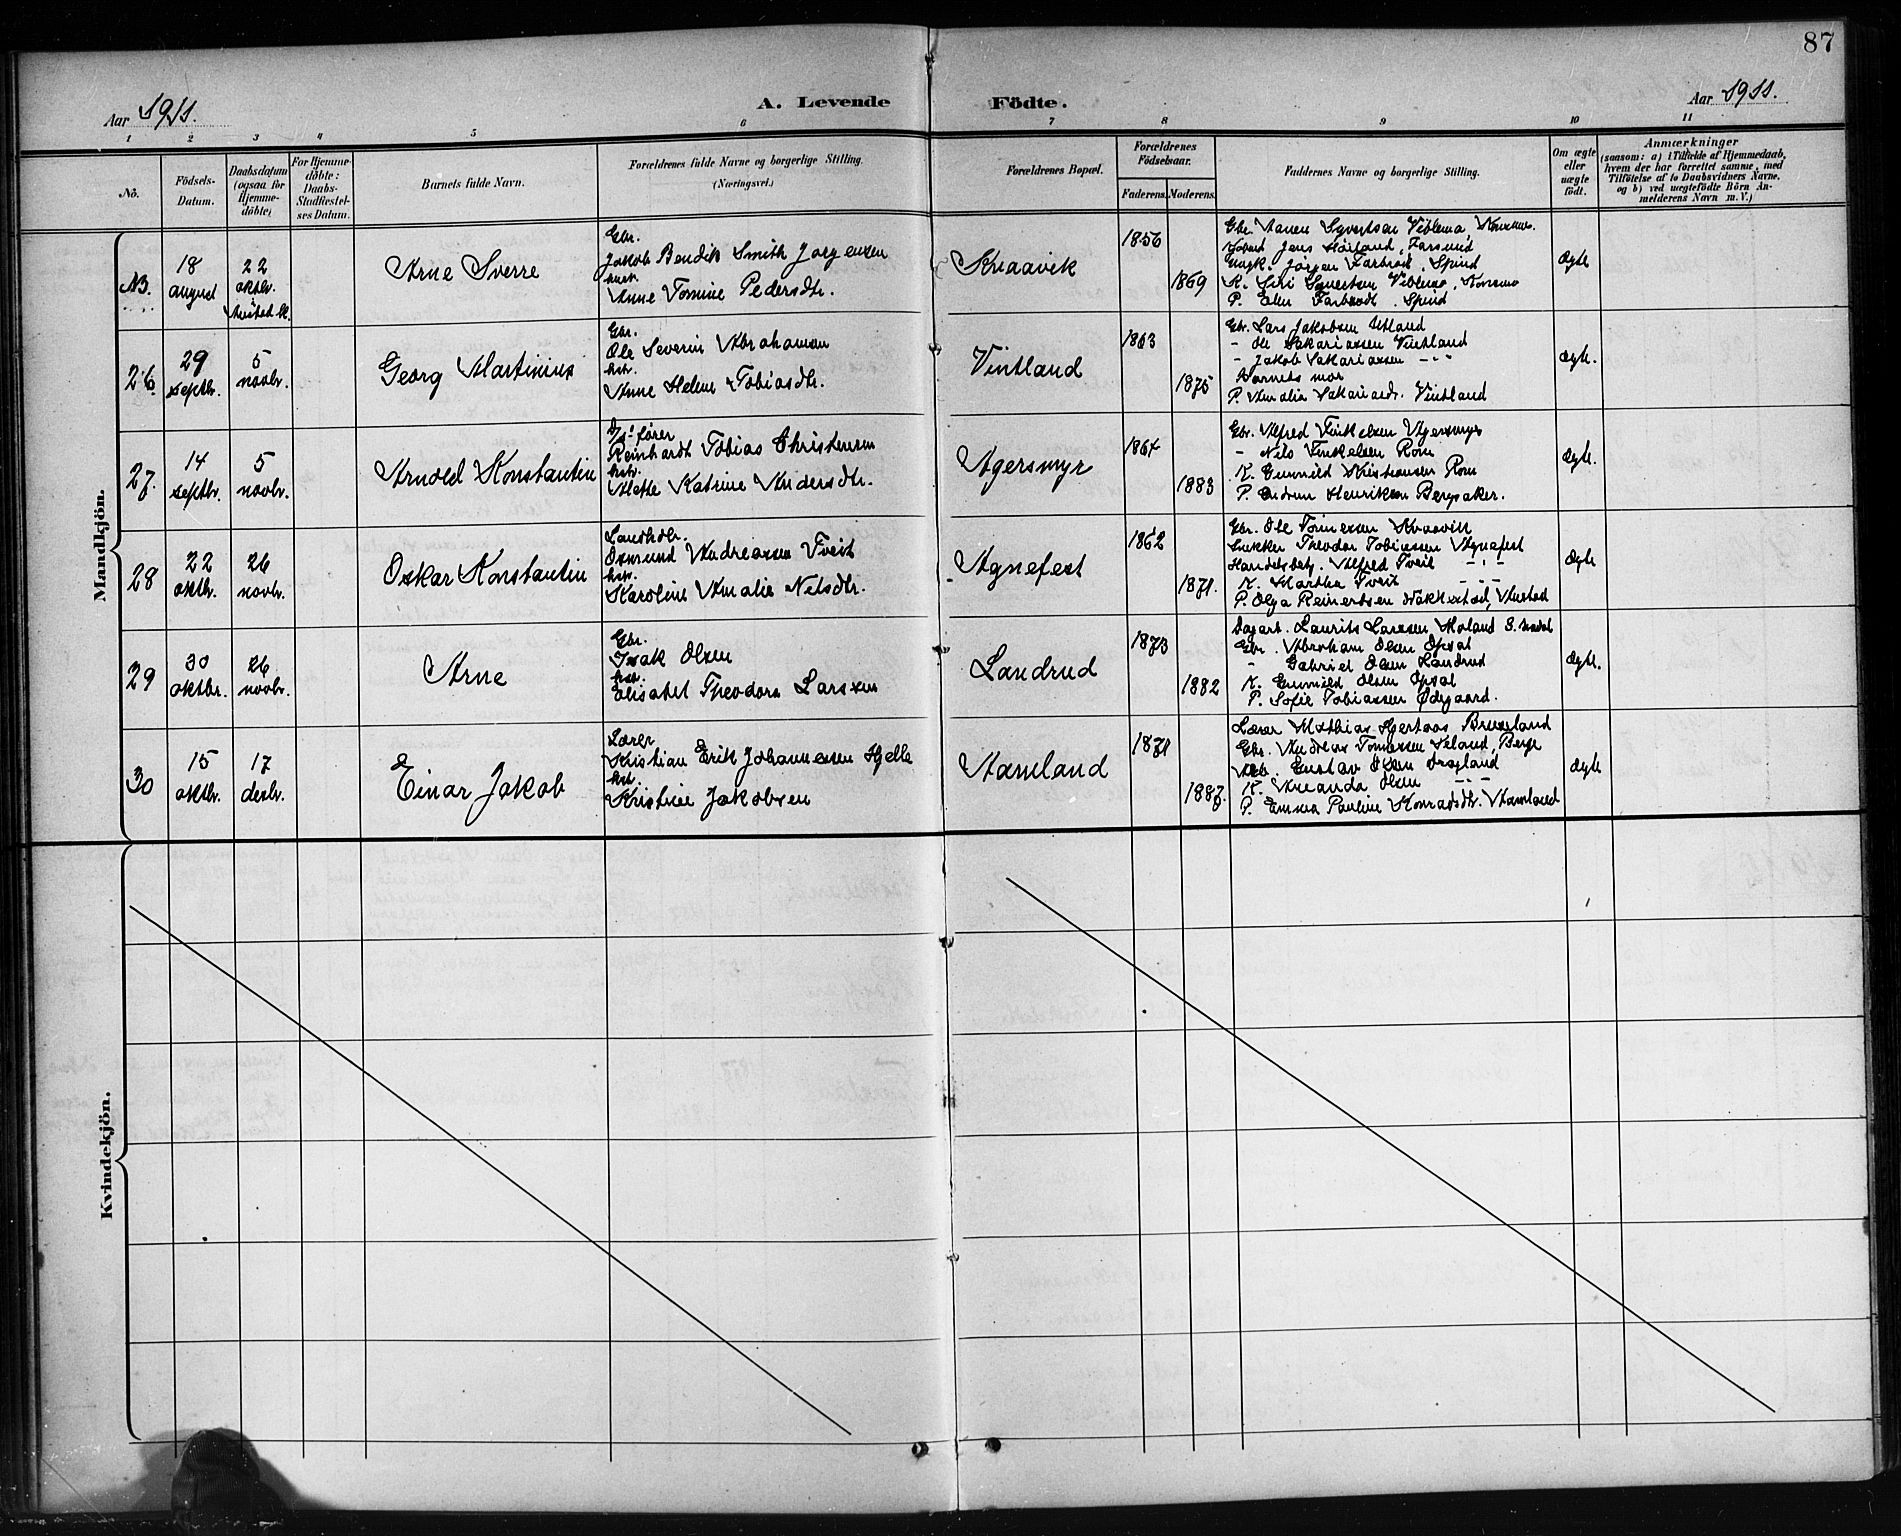 87
Aar 1911.
A. Levende Födte.
Aar 1911.
1 2 3 4 5 6 7 8 9 10 11
No.
Födsels-Datum.
Daabsdatum (ogsaa for Hjemme-döbte)
For Hjemme-döbte: Daabs-Stadfæstel-ses Datum.
Barnets fulde Navn.
Forældrenes fulde Navne og borgerlige Stilling. (Næringsvei.)
Forældrenes Bopæl.
Forældrenes Födselsaar.
Faderens. Moderens.
Faddernes Navne og borgerlige Stilling.
Om ægte eller uægte födt.
Anmærkninger
(saasom: a) i Tilfælde af Hjemmedaab, hvem der har forrettet samme, med Tilföielse af to Daabsvidners Navne, og b) ved uægtefödte Börn An-melderens Navn m. V.)
Mandkjön.
NB.
18 august
22 oktbr.
Arne Sverre
Gbr.
Jakob Bendik Smith Jørgensen
hust.
Anne Tomine Pedersdtr.
Kvaavik
1856
1869
Jens Hørland, Farsund
Ungk. Jörgen Farbrodt, Spind
P. Ellen Farbrodt, Spind
Ægte
26.
29 septbr.
5 novbr.
Georg Martinius
Gbr.
Ole Severin Abrahamsen
hst.
Anne Helene Tobiasdtr.
Vintland
1863
1875
Gbr. Lars Jakobsen Utland
- Ole Sakariassen Vintland
- Jakob Sakariassen - " -
Barnets mor
P. Amalia Sakariasdr. Vintland
Ægte.
27.
14 septbr.
5 novbr.
Arnold Konstantin
D/s. fører
Reinhardt Tobias Christensen
hst.
Mette Katrine Andersdtr.
Agersmyr
1864
1883
Gbr. Alfred Finkelsen Agersmyr
- Nils Finkelsen Rom
K. Gunnild Kristiansen Rom
P. Gudrun Henriksen Bergsaker.
Ægte.
28
22 oktbr.
26 novbr.
Oskar Konstantin
Landhdlr.
Osmund Andreassen Tveit
hst.
Karoline Amalie Nilsdtr.
Agnefest
1862
1871.
Gbr. Ole Tønnessen Kvaavik
Snekker Theodor Tobiassen Agnefest
Handelsbetj. Alfred Tveit - " -
K. Martha Tveit - " -
P. Olga Reinertsen
Ægte
29
30 oktbr.
26 novbr.
Arne
Gbr.
Isak Olsen
hst.
Elisabet Theodora Larssen
Landrud
1873
1882
Dagarb. Laurits Larssen Møland
Gbr. Abraham Olsen Opsal
- Gabriel Olsen Landrud
K. Gunnild Olsen Opsal
P. Sofie Tobiassen Ødegaard.
Ægte.
30
15 oktbr.
17 desbr.
Einar Jakob
Lærer
Kristian Erik Johannessen Hjelle
hst.
Kristine Jakobsen
Aamland
1871
1887.
Lærer Mathias Hjertaas
Gbr. Andreas Tønnessen
Gustav Olsen
K. Amanda Olsen - " -
P. Emma Pauline Konradsdtr. Aamland
Ægte
Kvindekjön.